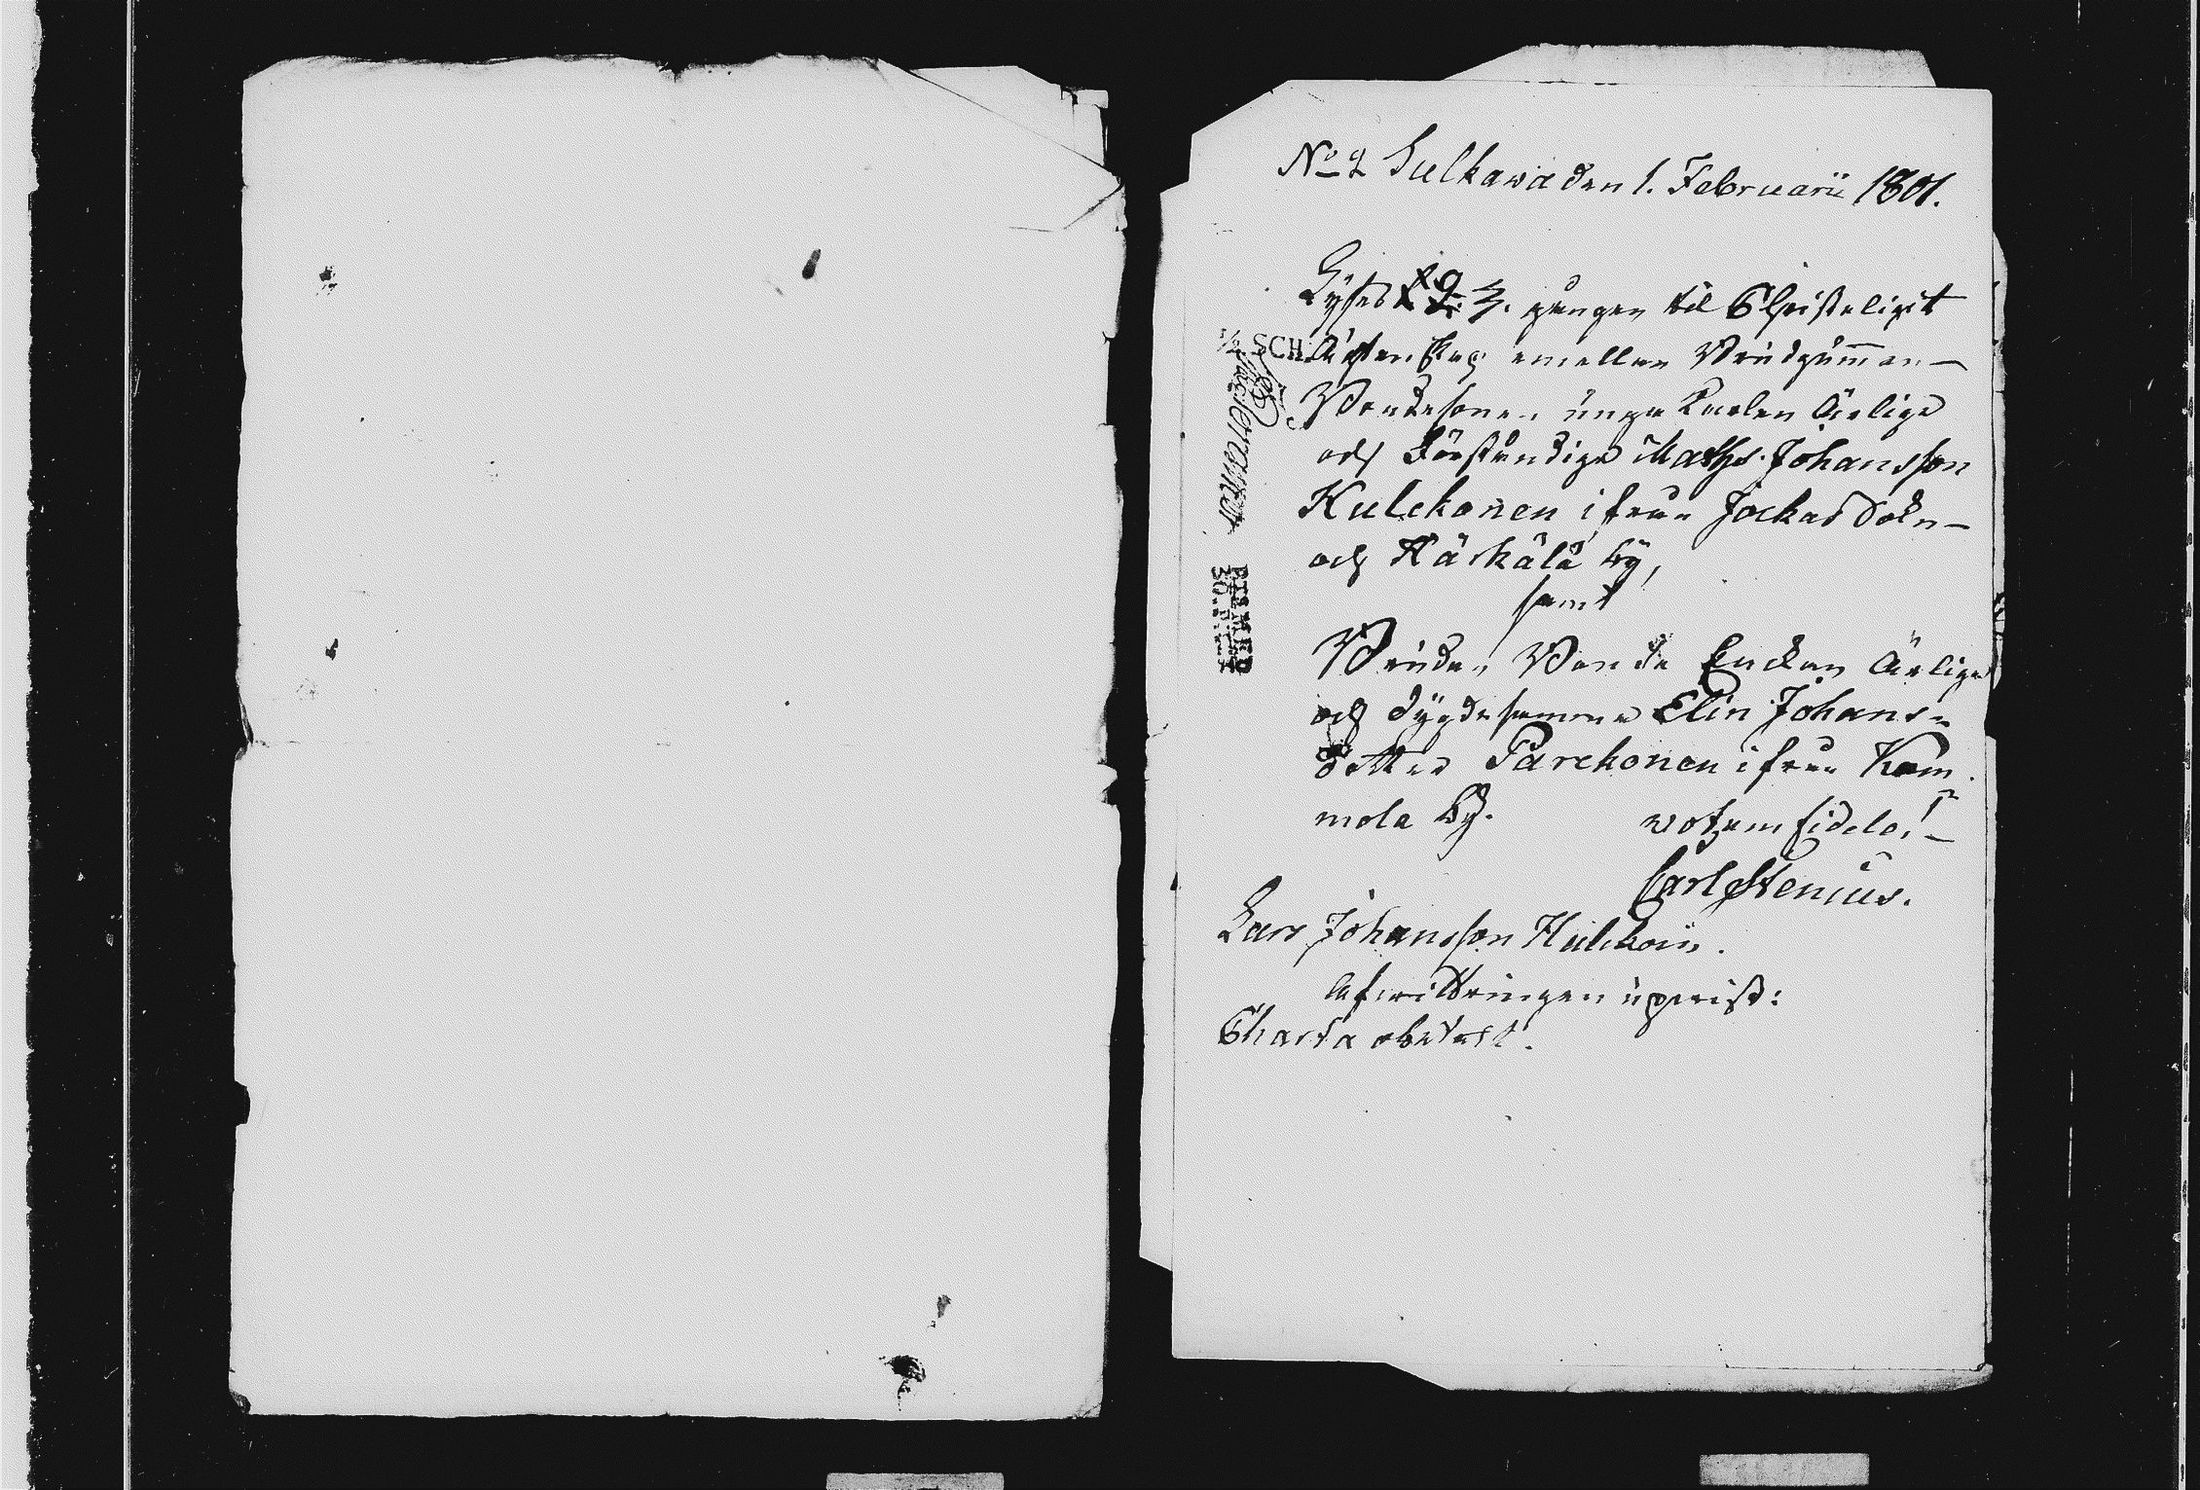 No 2 Sulkawa den 1. Februarii 1801.
Lyses 1. 2. 3. gången til Christeligit
Ächtenskap emellan Brudgumman
Bondesonen unge Karlen Ärlige
och Förståndige Mathts Johansson
Kulckonen ifrån Jockas Sokn
och Härkälä by,
samt
Bruden Bonde Enckan Ärliga
och dygdesamma Elin Johans-
dotter Parckonen ifrån Kam
mola by.
votum fidele!
Carl Stenius.
Lars Johansson
Afwittringen upwist:
Charta
SCH.